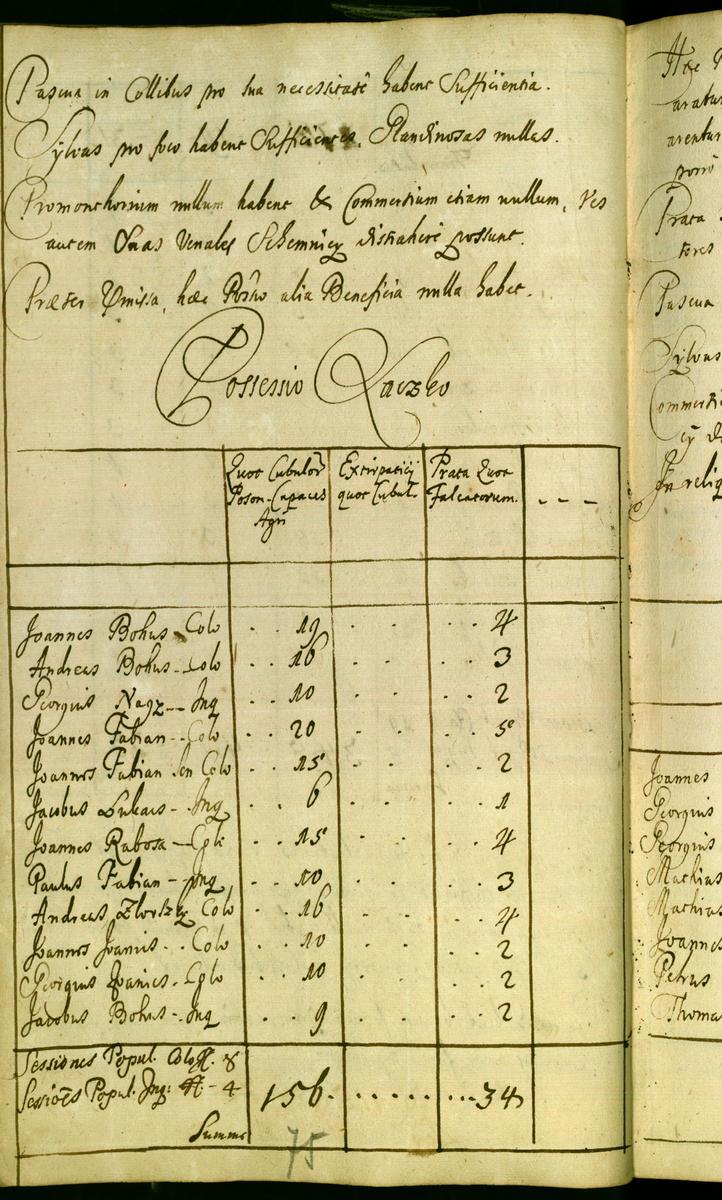 Pascua in Collibus pro sua necessitate habent Sufficientia.
Sylvas pro foco habent Sufficientes, Glandinosas nullas.
Promonthorium nullum habent & Commertium etiam nullum, res
autem Suas Venales Schemnicy distrahere possunt.
Præter Præmissa, hæc Possio alia Beneficia nulla habet.
Possessio Laczko
Quot Cubulor Poson. Capaces Agri | Extirpaticij quot Cubul. | Prata Quot Falcatorum. | - - -
Joannes Bohus - Colo . . 19 . . . . 4
Andreas Bohus - Colo . . 16 . . . . 3
Georgius Nagz - Inq . . 10 . . . . 2
Joannes Fabian - Colo . . 20 . . . . 5
Joannes Fabian Sen Colo . . 15 . . . . 2
Jacobus Lukacs - Inq . . 6 . . . . 1
Joannes Rabosa - Colo . . 15 . . . . 4
Paulus Fabian - Inq . . 10 . . . . 3
Andreas Colo . . 16 . . . . 4
Joannes Joanis - Colo . . 10 . . . . 2
Georgius Joanies - Colo . . 10 . . . . 2
Jacobus Bohus - Inq . . 9 . . . . 2
Sessiones Popul. Colo 8
Sessiões Popul. Inq: 4
Summa 156 . . . . . . . . . 34
75
Hæ
arabu
aventur
porro
Prata
tores
Pascua
Sylvas
Commerti
cy di
In reliq
Joannes
Georgius
Georgius
Mathias
Mathias
Joannes
Petrus
Thoma